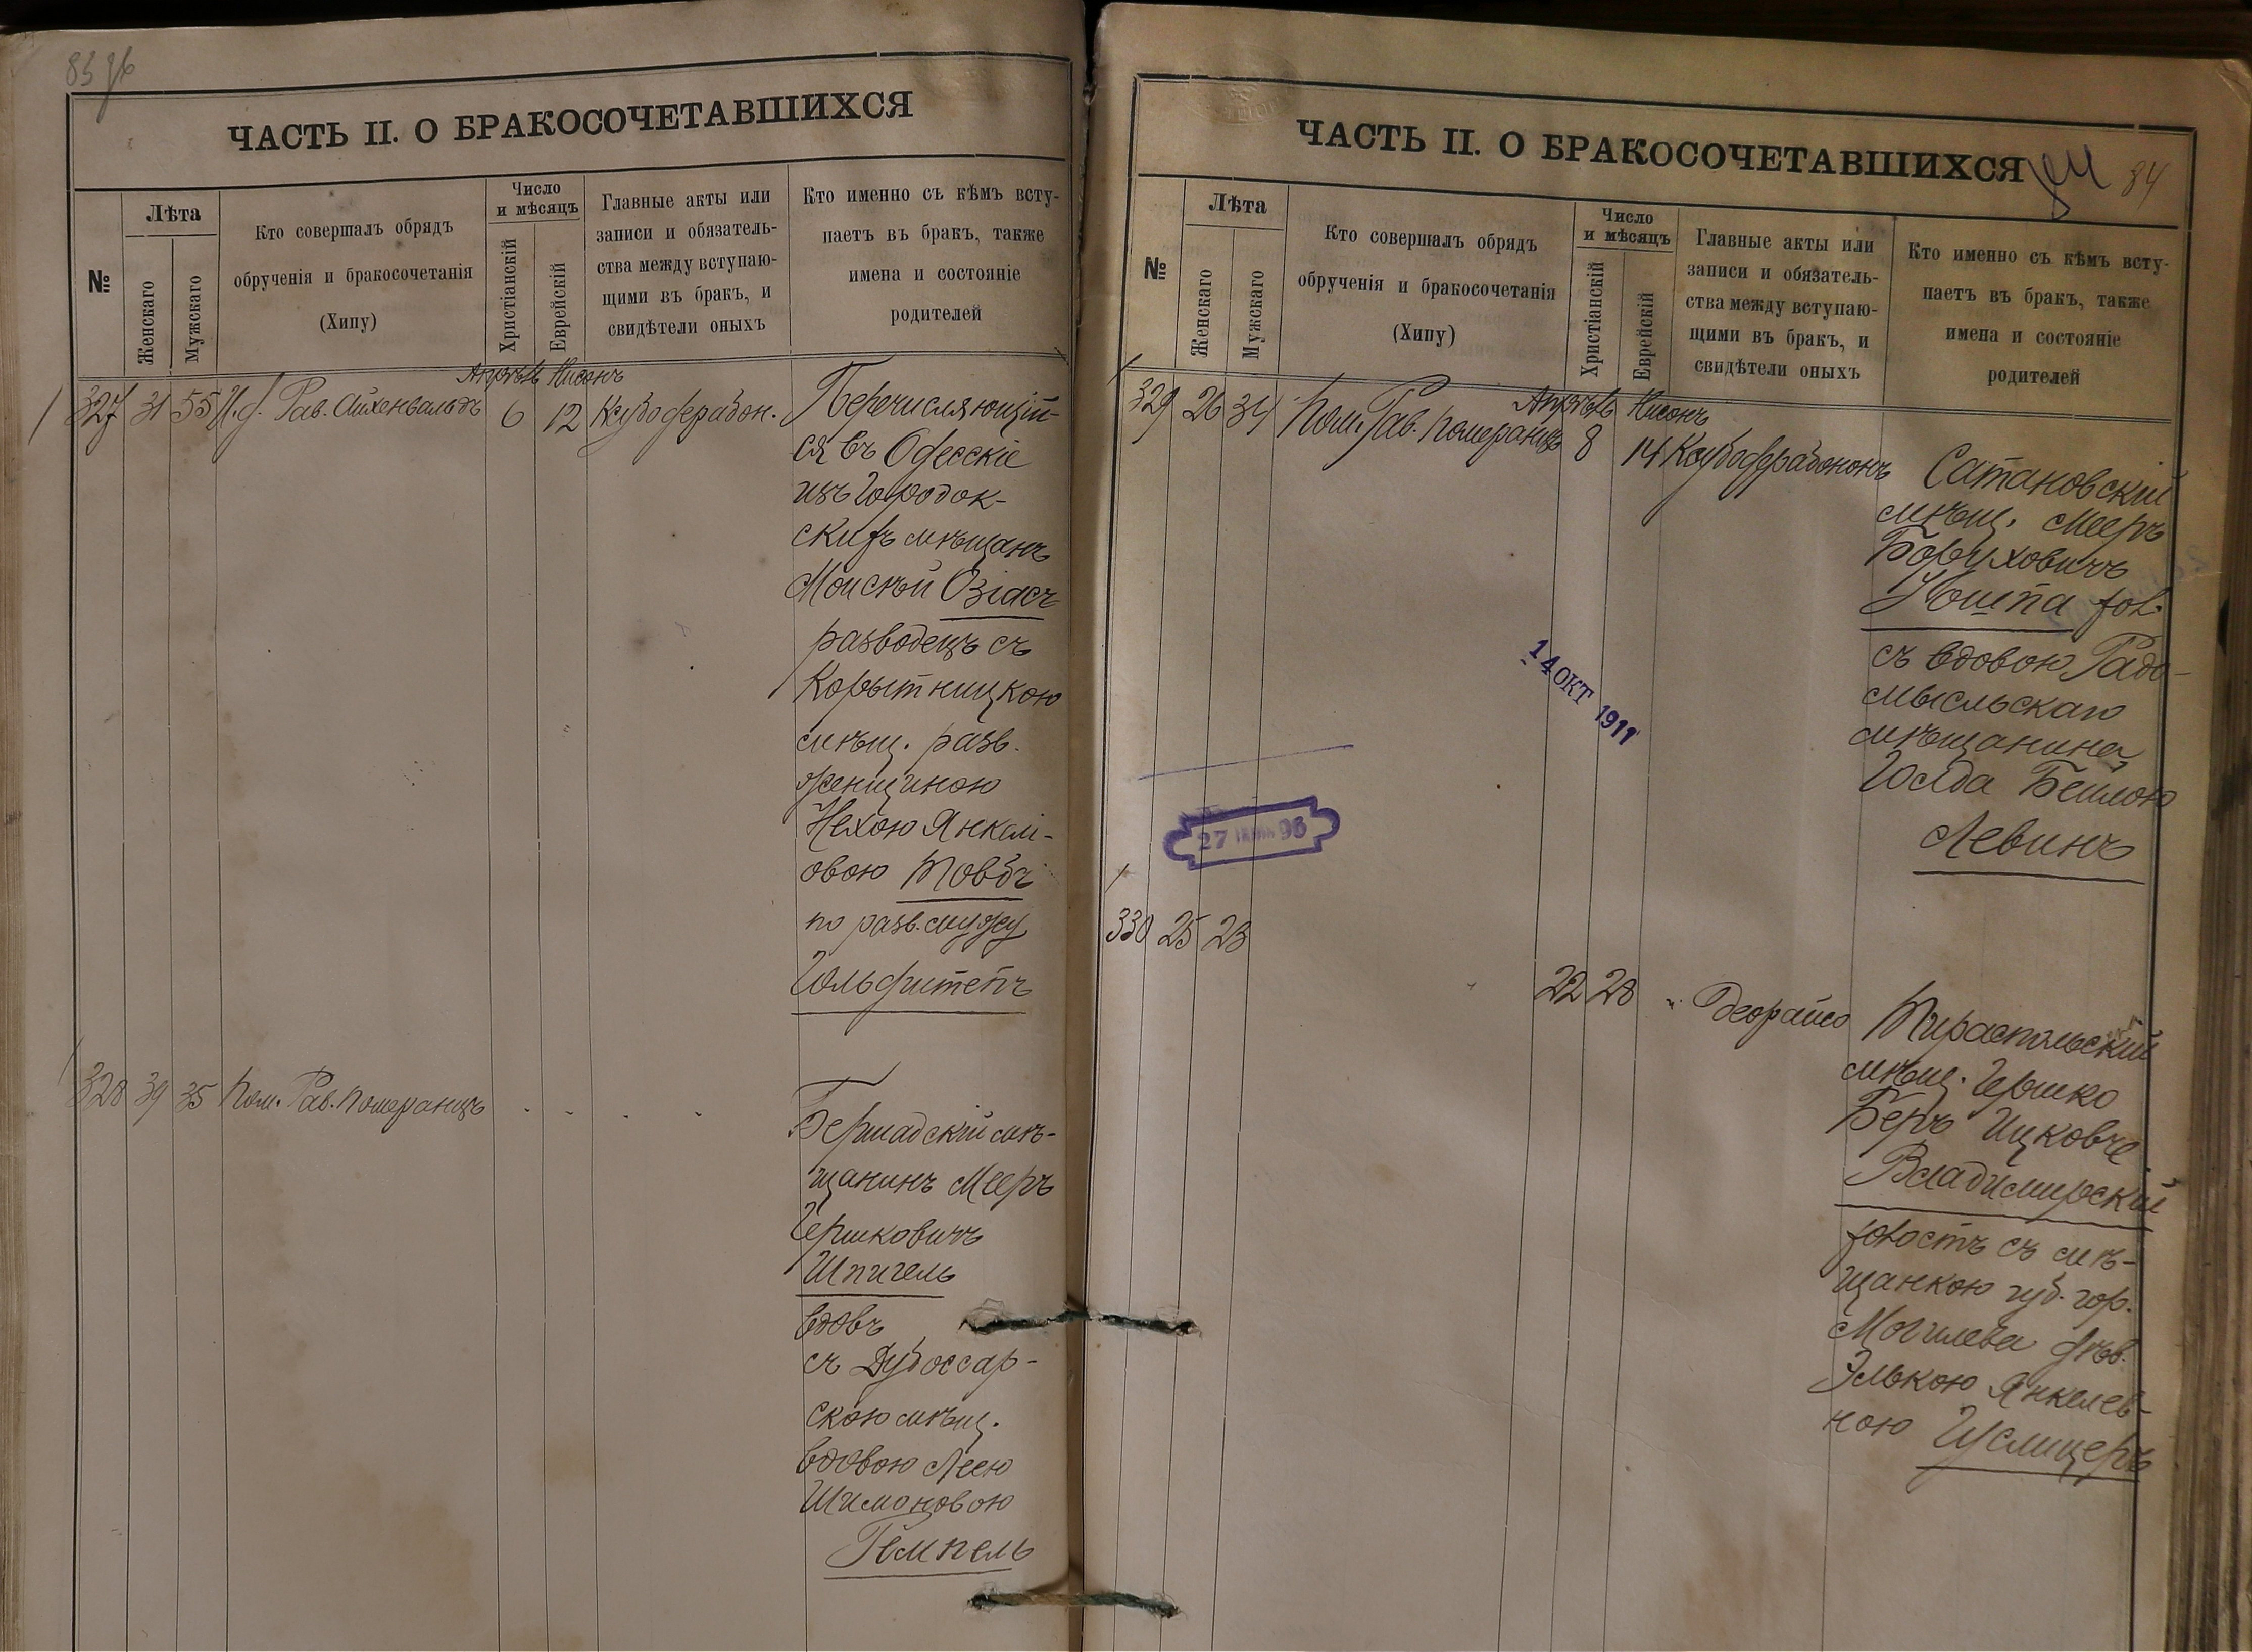 83 об
ЧАСТЬ II. О БРАКОСОЧЕТАВШИХСЯ
№
Лѣта
Женскаго
Мужскаго
Кто совершалъ обрядъ
обрученія и бракосочетанія
(Хипу)
Число
и мѣсяцъ
Христіанскій
Еврейскій
Главные акты или
записи и обязатель-
ства между вступаю-
щими въ бракъ, и
свидѣтели оныхъ
Кто именно съ кѣмъ всту-
паетъ въ бракъ, также
имена и состояніе
родителей
Апрѣль Нисонъ
327 31 55 И.д. Рав. Айхенвальдъ 6 12 Ксубо дерабон.
Перечисляющій-
ся въ Одесскіе
изъ Городок-
скихъ мѣщанъ
Моисѣй Озіасъ
разводецъ съ
Корытницкою
мѣщ. разв.
женщиною
Нехою Янкел-
овою Товбъ
по разв. мужу
328 39 35 Пом. Рав. Померанцъ
Бершадскій мѣ-
щанинъ Мееръ
Гершковичъ
Шпигель
вдовъ
съ Дубоссар-
скою мѣщ.
вдовою Леею
Шимоновою
Темпель
ЧАСТЬ II. О БРАКОСОЧЕТАВШИХСЯ
84
№
Лѣта
Женскаго
Мужскаго
Кто совершалъ обрядъ
обрученія и бракосочетанія
(Хипу)
Число
и мѣсяцъ
Христіанскій
Еврейскій
Главные акты или
записи и обязатель-
ства между вступаю-
щими въ бракъ, и
свидѣтели оныхъ
Кто именно съ кѣмъ всту-
паетъ въ бракъ, также
имена и состояніе
родителей
Апрѣль Нисонъ
329 26 34 Пом. Рав. Померанцъ 8 14 Ксубо дерабононъ
Сатановскій
мѣщ. Мееръ
Боруховичъ
съ вдовою Радо-
мысльскаго
мѣщанина
Бейлою
Левинъ
14 ОКТ 1911
27 96
330 25 23
22 28 " Деорайсо
Тираспольскій
мѣщ. Гершко
Беръ Ицковъ
Владимирскій
холостъ съ мѣ-
щанкою губ. гор.
Могилева дѣв.
Элькою Янкелев-
ною